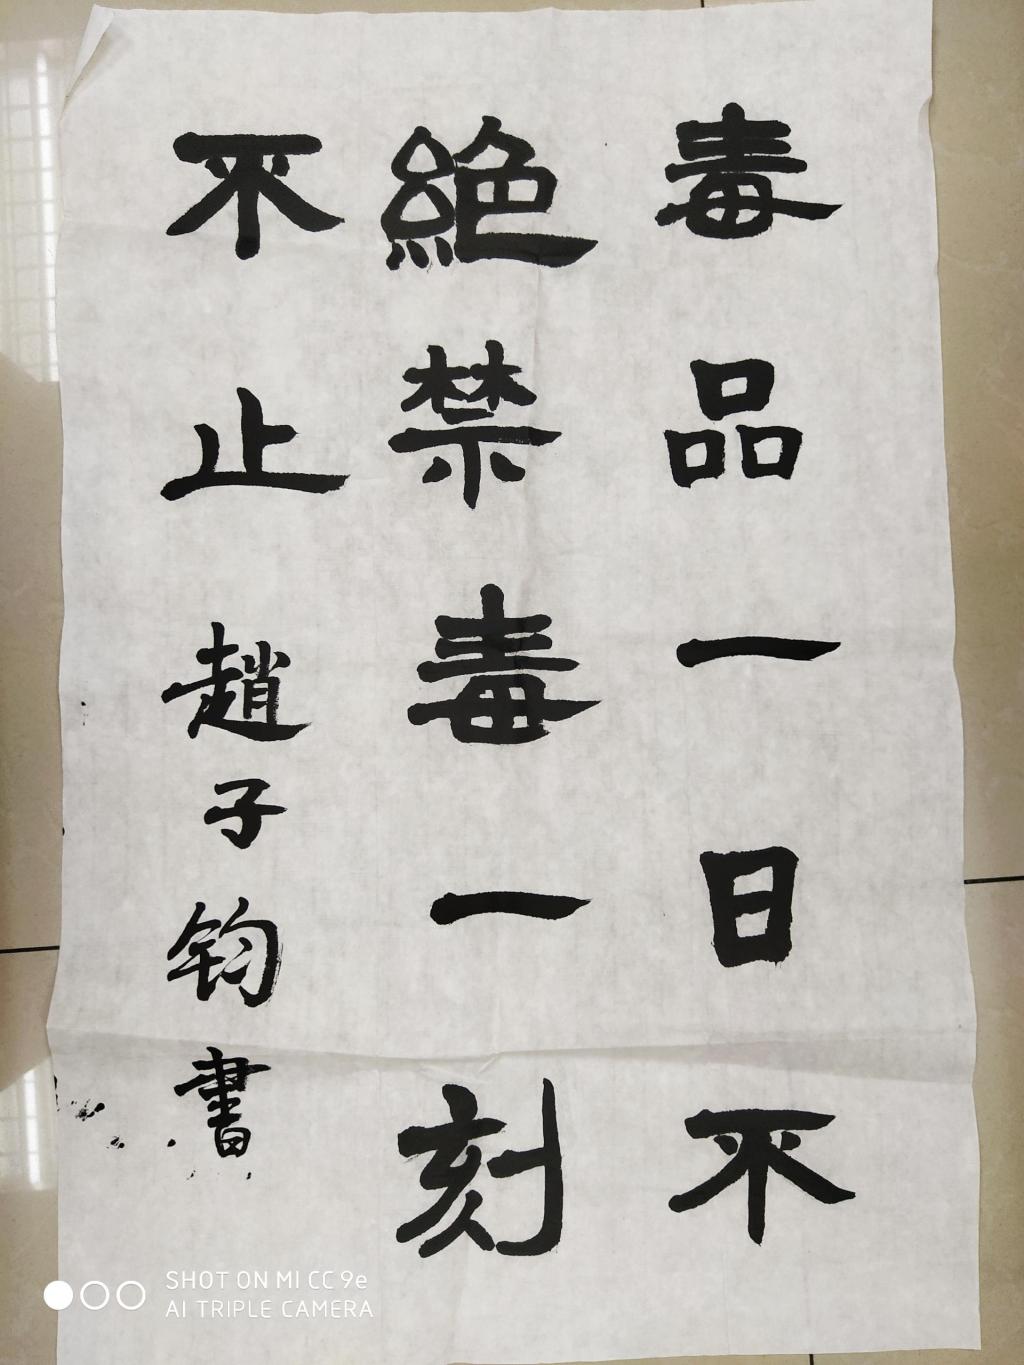 毒品一日不
絕禁毒一刻
不止 趙子钧書
SHOT ON MI CC 9e
AI TRIPLE CAMERA